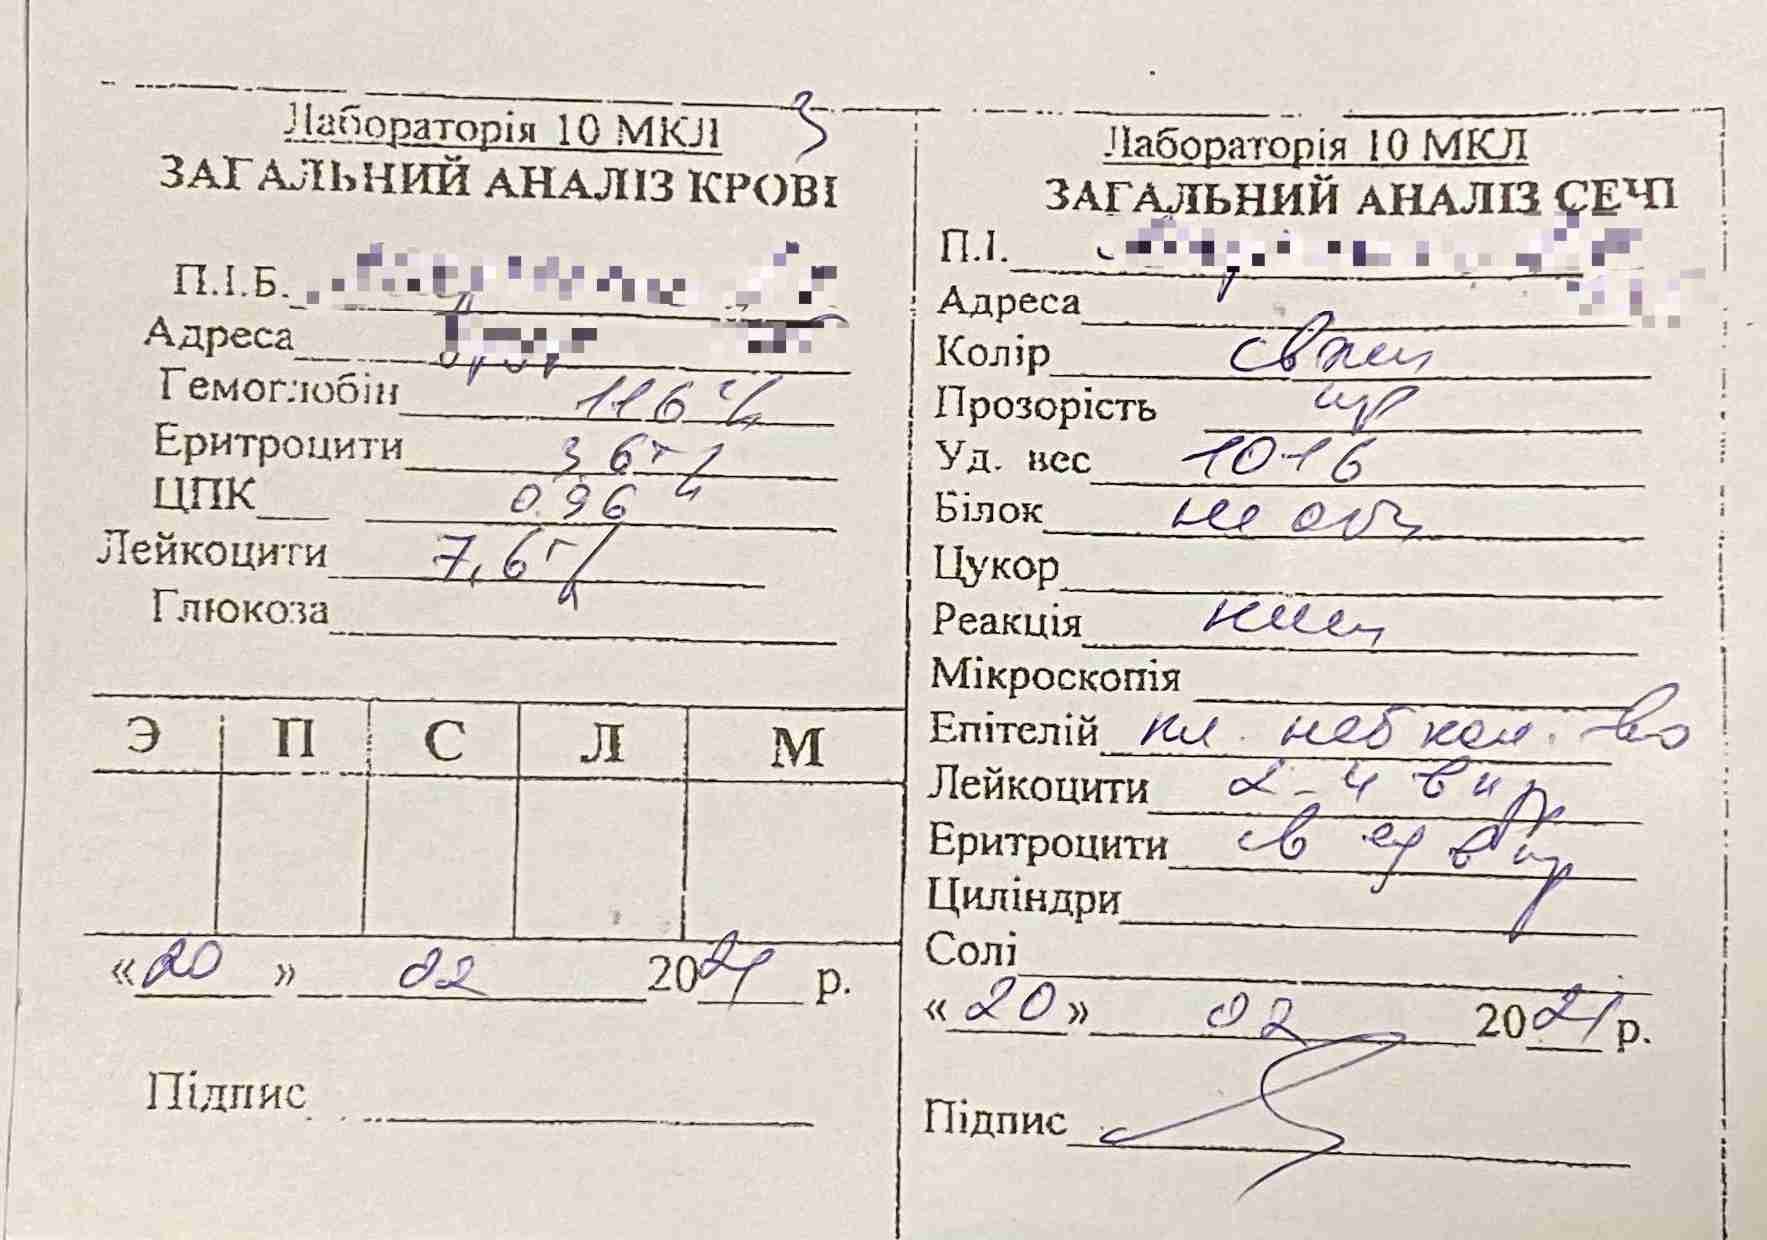 Лабораторія 10 МКЛ
ЗАГАЛЬНИЙ АНАЛІЗ КРОВІ
П.І.Б.
Адреса
Гемоглобін 116 г/л
Еритроцити 3,6 т/л
ЦПК 0.96
Лейкоцити 7,6 г/л
Глюкоза
Э П С Л М
«20» 02 2021 р.
Підпис
Лабораторія 10 МКЛ
ЗАГАЛЬНИЙ АНАЛІЗ СЕЧІ
П.І.
Адреса
Колір св жел
Прозорість пр
Уд. вес 1016
Білок не обн
Цукор
Реакція кисл
Мікроскопія
Епітелій пл. неб кол-во
Лейкоцити 2-4 в п/зр
Еритроцити св ед в п/зр
Циліндри
Солі
«20» 02 2021 р.
Підпис